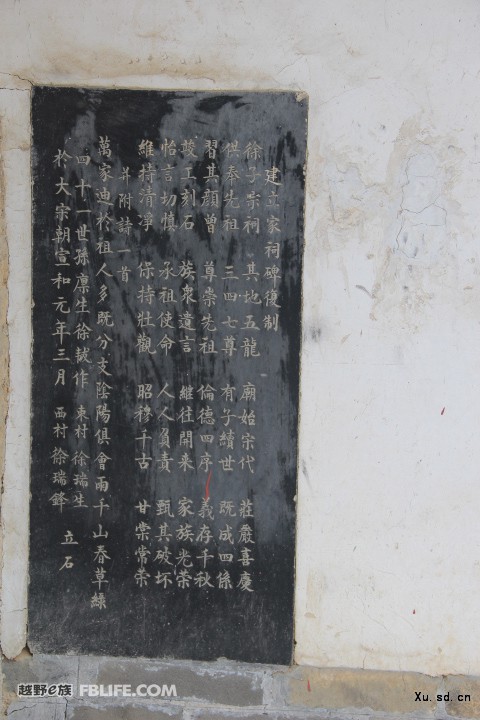 建立家祠碑復制
徐子宗祠 其地五龍 廟始宋代 莊嚴喜慶
供奉先祖 三四七尊 有子續世 既成四係
習其顏曾 尊崇先祖 倫德四序 義存千秋
竣工刻石 族衆遺言 繼往開来 家族光荣
怡言切慎 承祖使命 人人負責 甄其破坏
維持清凈 保持壯觀 昭穆千古 甘棠常荣
并附詩一首
萬家迪於祖人多既分支陰陽俱會雨千山春草緑
四十一世孫廪生徐 作 東村 徐瑞生
於大宗朝宣和元年三月 西村 徐瑞鋒 立石
越野e族 FBLIFE.COM
Xu.sd.cn